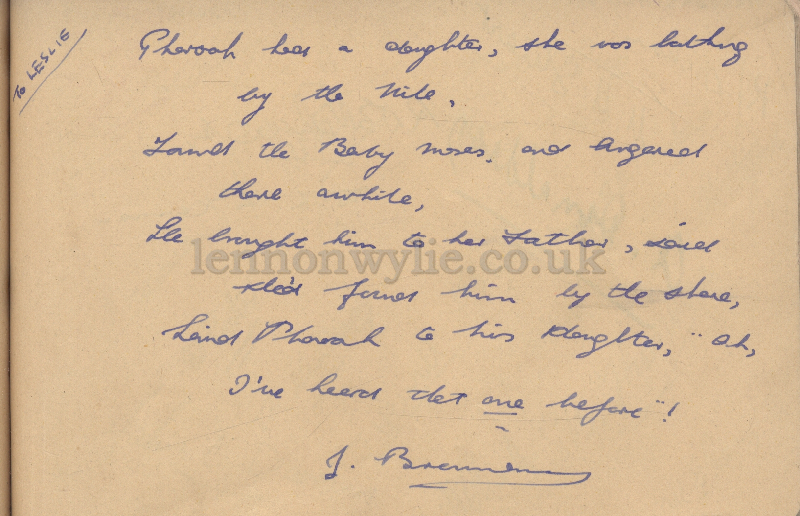 To LESLIE
Pharoah has a daughter, she was bathing
by the Nile,
Found the Baby Moses, and lingered
there awhile,
She brought him to her Father, said
she'd found him by the shore,
Said Pharoah to his daughter, "Oh,
I've heard that one before"!
J. Brennan
lennonwylie.co.uk